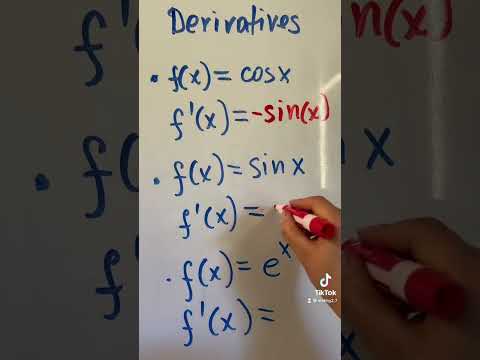 Derivatives
• f(x) = cosx
f'(x) = -sin(x)
• f(x) = sin x
f'(x) =
• f(x) = e^x
f'(x) =
TikTok